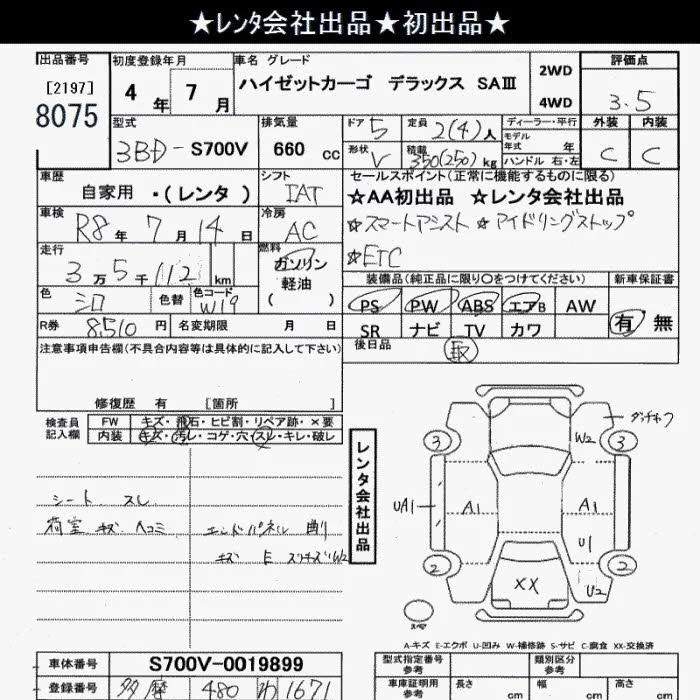 ★レンタ会社出品★初出品★
出品番号 初度登録年月 車名 グレード 評価点
[2197] 4年 7月 ハイゼットカーゴ デラックス SAⅢ 2WD 4WD 3.5
8075
型式 排気量 ドア 5 定員 2(4)人 ディーラー・平行 外装 内装
3BD-S700V 660 cc 形状 V 積載 350(250)kg モデル年式 年 C C
ハンドル 右・左
車歴 シフト セールスポイント(正常に機能するものに限る)
自家用 ・(レンタ ) IAT ☆AA初出品 ☆レンタ会社出品
車検 R8年 7月 14日 冷房 AC ☆スマートアシスト ☆アイドリングストップ
☆ETC
走行 3万5千112 km 燃料 ガソリン 軽油 ( )
装備品(純正品に限り○をつけてください) 新車保証書
色 シロ 色替 色コード W19 PS PW ABS エアB AW 有 無
R券 8,510円 名変期限 月 日 SR ナビ TV カワ
後日品 取
注意事項申告欄(不具合内容等は具体的に記入して下さい)
修復歴 有 [箇所 ]
検査員記入欄 FW キズ・飛石・ヒビ割・リペア跡・×要
内装 キズ・汚レ・コゲ・穴・スレ・キレ・破レ
レンタ会社出品
シート スレ
荷室 キズ ヘコミ エンドパネル 曲り
キズ E スリキズW2
タッチキズ
3 W2 3
UA1 A1 A1
U1
2 XX 2
U2
スペア
A-キズ E-エクボ U-凹み W-補修跡 S-サビ C-腐食 XX-交換済
車体番号 S700V-0019899 型式指定番号 参考 類別区分 参考
登録番号 多摩 480 わ 1671 車庫証明用 参考 長さ cm 幅 cm 高さ cm